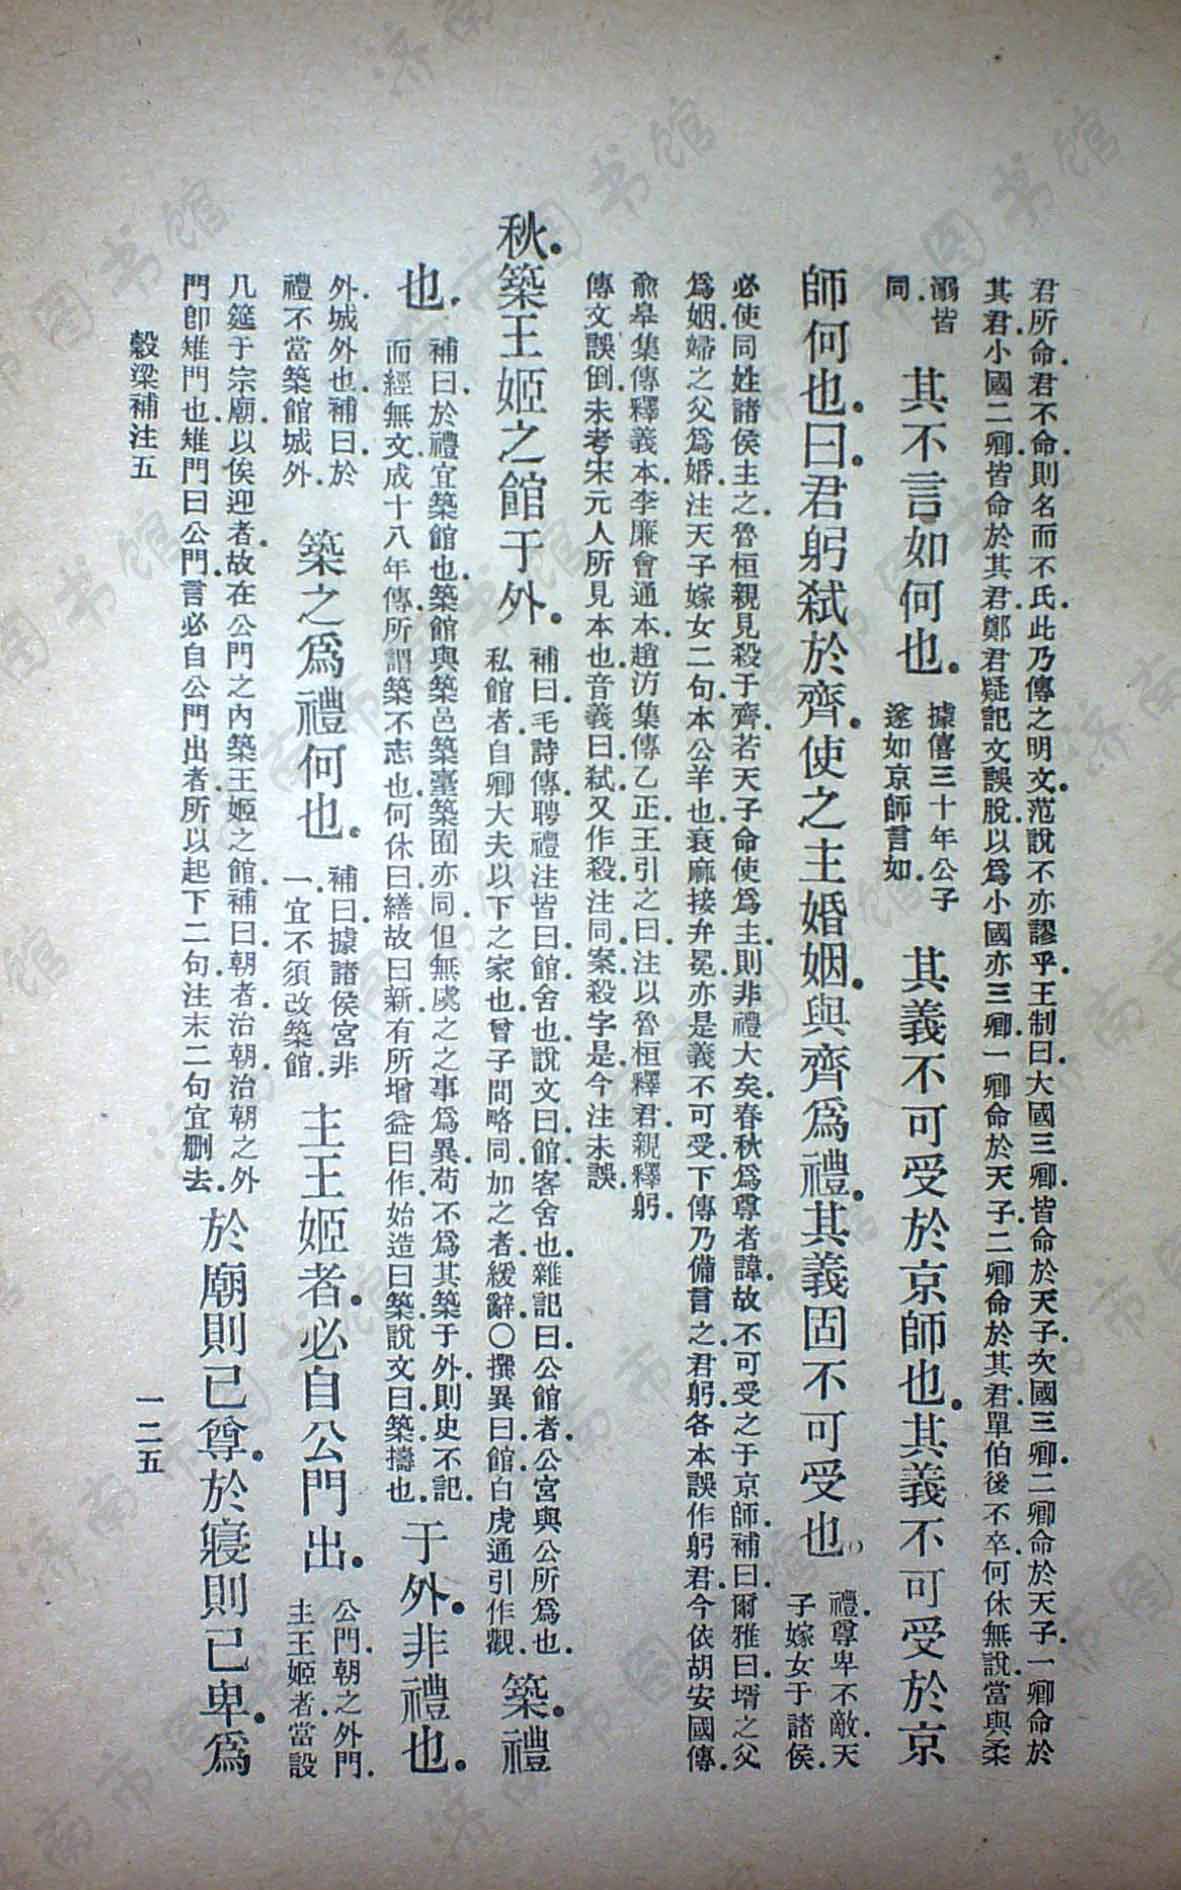 君所命君不命則名而不氏此乃傳之明文范說不亦謬乎王制曰大國三卿皆命於天子次國三卿二卿命於天子一卿命於
其君小國二卿皆命於其君鄭君疑記文誤脫以爲小國亦三卿一卿命於天子二卿命於其君單伯後不卒何休無說當與柔
溺皆
同
其不言如何也
據僖三十年公子
遂如京師言如
其義不可受於京師也其義不可受於京
師何也曰君躬弒於齊使之主婚姻與齊爲禮其義固不可受也
禮尊卑不敵天
子嫁女于諸侯
必使同姓諸侯主之魯桓親見殺于齊若天子命使爲主則非禮大矣春秋爲尊者諱故不可受之于京師補曰爾雅曰壻之父
爲姻婦之父爲婚注天子嫁女二句本公羊也衰麻接弁冕亦是義不可受下傳乃備言之君躬各本誤作躬君今依胡安國傳
俞皋集傳釋義本李廉會通本趙汸集傳乙正王引之曰注以魯桓釋君親釋躬
傳文誤倒未考宋元人所見本也音義曰弒又作殺注同案殺字是今注未誤
秋築王姬之館于外
補曰毛詩傳聘禮注皆曰館舍也說文曰館客舍也雜記曰公館者公宮與公所爲也
私館者自卿大夫以下之家也曾子問略同加之者緩辭○撰異曰館白虎通引作觀
築禮
也
補曰於禮宜築館也築館與築邑築臺築囿亦同但無虞之之事爲異苟不爲其築于外則史不記
而經無文成十八年傳所謂築不志也何休曰繕故曰新有所增益曰作始造曰築說文曰築擣也
于外非禮也
外城外也補曰於
禮不當築館城外
築之爲禮何也
補曰據諸侯宮非
一宜不須改築館
主王姬者必自公門出
公門朝之外門
主王姬者當設
几筵于宗廟以俟迎者故在公門之內築王姬之館補曰朝者治朝治朝之外
門卽雉門也雉門曰公門言必自公門出者所以起下二句注末二句宜删去
於廟則已尊於寢則已卑爲
穀梁補注五
一二五